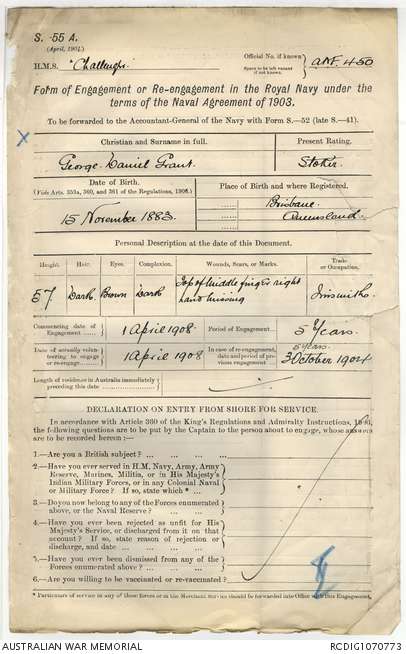 S. -55 A.
(April, 1901.)
H.M.S. "Challenger"
Official No. if known
Space to be left vacant if not known.
ANF. 450
Form of Engagement or Re-engagement in the Royal Navy under the
terms of the Naval Agreement of 1903.
To be forwarded to the Accountant-General of the Navy with Form S.—52 (late S.—41).
Christian and Surname in full.
Present Rating.
George Daniel Grant.
Stoker.
Date of Birth.
(Vide Arts. 353a, 360, and 361 of the Regulations, 190 .)
Place of Birth and where Registered.
15 November 1883.
Brisbane.
Queensland.
Personal Description at the date of this Document.
Height. Hair. Eyes. Complexion. Wounds, Scars, or Marks. Trade or Occupation.
5 7 Dark Brown Dark Top of Middle finger right hand missing Tinsmith.
Commencing date of Engagement 1 April 1908 Period of Engagement 5 Years.
Date of actually volunteering to engage or re-engage 1 April 1908 In case of re-engagement, date and period of previous engagement 5 years. 3 October 1904
Length of residence in Australia immediately preceding this date
DECLARATION ON ENTRY FROM SHORE FOR SERVICE.
In accordance with Article 360 of the King's Regulations and Admiralty Instructions,
the following questions are to be put by the Captain to the person about to engage, whose answers
are to be recorded herein :—
1.—Are you a British subject? ...
2.—Have you ever served in H.M. Navy, Army, Army
Reserve, Marines, Militia, or in His Majesty's
Indian Military Forces, or in any Colonial Naval
or Military Force? If so, state which * ...
3.—Do you now belong to any of the Forces enumerated
above, or the Naval Reserve? ...
4.—Have you ever been rejected as unfit for His
Majesty's Service, or discharged from it on that
account? If so, state reason of rejection or
discharge, and date ...
5.—Have you ever been dismissed from any of the
Forces enumerated above? ...
6.—Are you willing to be vaccinated or re-vaccinated?
* Particulars of service in any of these forces or in the Merchant Service should be forwarded into Office with this Engagement.
AUSTRALIAN WAR MEMORIAL
RCDIG1070773